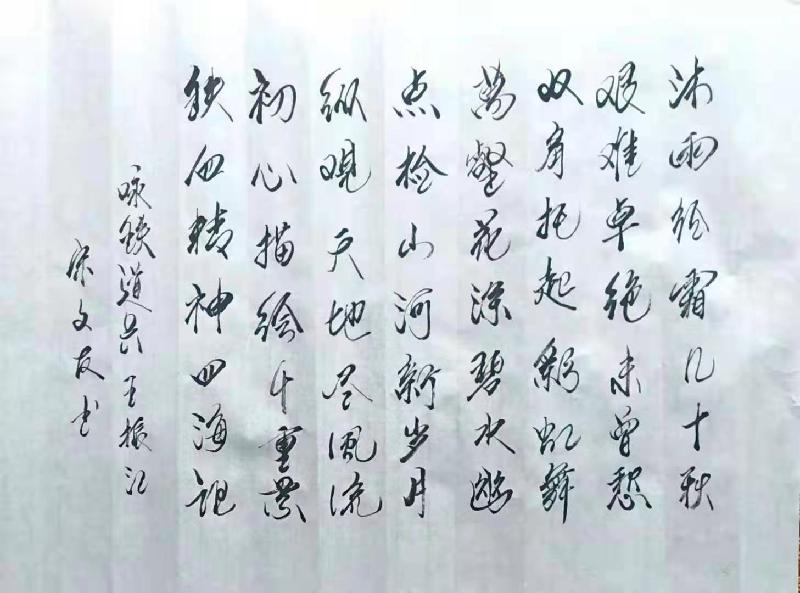 沐雨经霜几十秋
艰难卓绝未曾愁
双肩托起彩虹舞
萬壑花深碧水幽
点检山河新岁月
纵观天地尽風流
初心描绘千重景
铁血精神四海讴
咏铁道兵 王振江
宋文友书